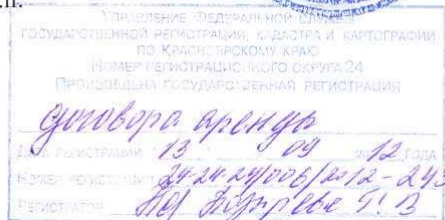 УПРАВЛЕНИЕ ФЕДЕРАЛЬНОЙ СЛУЖБЫ
ГОСУДАРСТВЕННОЙ РЕГИСТРАЦИИ, КАДАСТРА И КАРТОГРАФИИ
ПО КРАСНОЯРСКОМУ КРАЮ
НОМЕР РЕГИСТРАЦИОННОГО ОКРУГА 24
ПРОИЗВЕДЕНА ГОСУДАРСТВЕННАЯ РЕГИСТРАЦИЯ
договора аренды
ДАТА РЕГИСТРАЦИИ 13 09 2012 ГОДА
НОМЕР РЕГИСТРАЦИИ 24-24-24/006/2012-243
РЕГИСТРАТОР